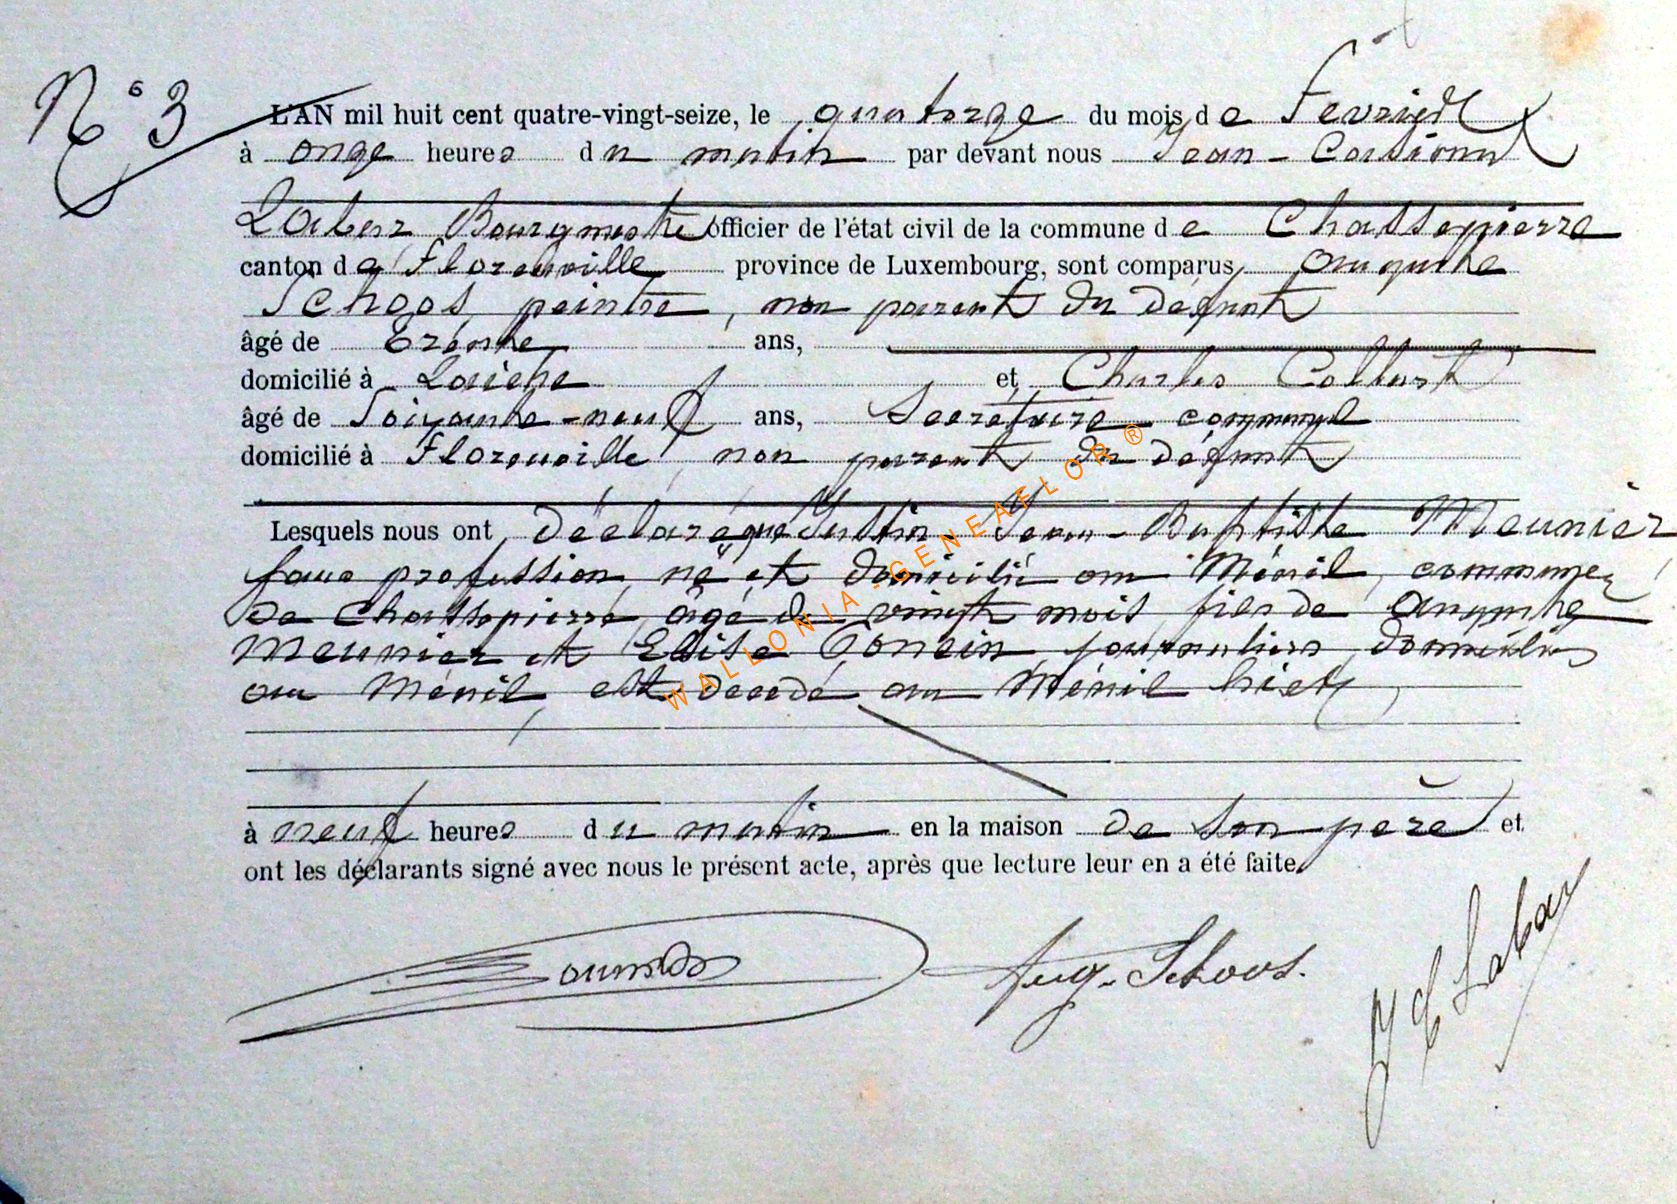 N° 3
L'AN mil huit cent quatre-vingt-seize, le quatorze du mois de Fevrier
à onze heures du matin par devant nous Jean-Casimir
Laber, Bourgmestre officier de l'état civil de la commune de Chassepierre
canton de Florenville province de Luxembourg, sont comparus, Auguste
Schoos, peintre, non parent du défunt
âgé de Trente ans,
domicilié à et Charles
âgé de Soixante-neuf ans, Secrétaire communal
domicilié à Florenville, non parent du défunt
Lesquels nous ont déclaré que Justin Jean-Baptiste Meunier
sans profession, né et domicilié au Ménil, commune
de Chassepierre, âgé de vingt mois, fils de Auguste
Meunier et Elise journaliers domiciliés
au Ménil, est décédé au Ménil hier,
à neuf heures du matin en la maison de son père et
ont les déclarants signé avec nous le présent acte, après que lecture leur en a été faite.
Aug. Schoos.
J C Laber
WALLONIA-GENEAFLOR ®